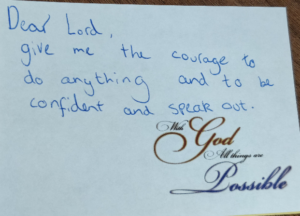 Dear Lord,
give me the courage to
do anything and to be
confident and speak out.
With
God
All things are
Possible